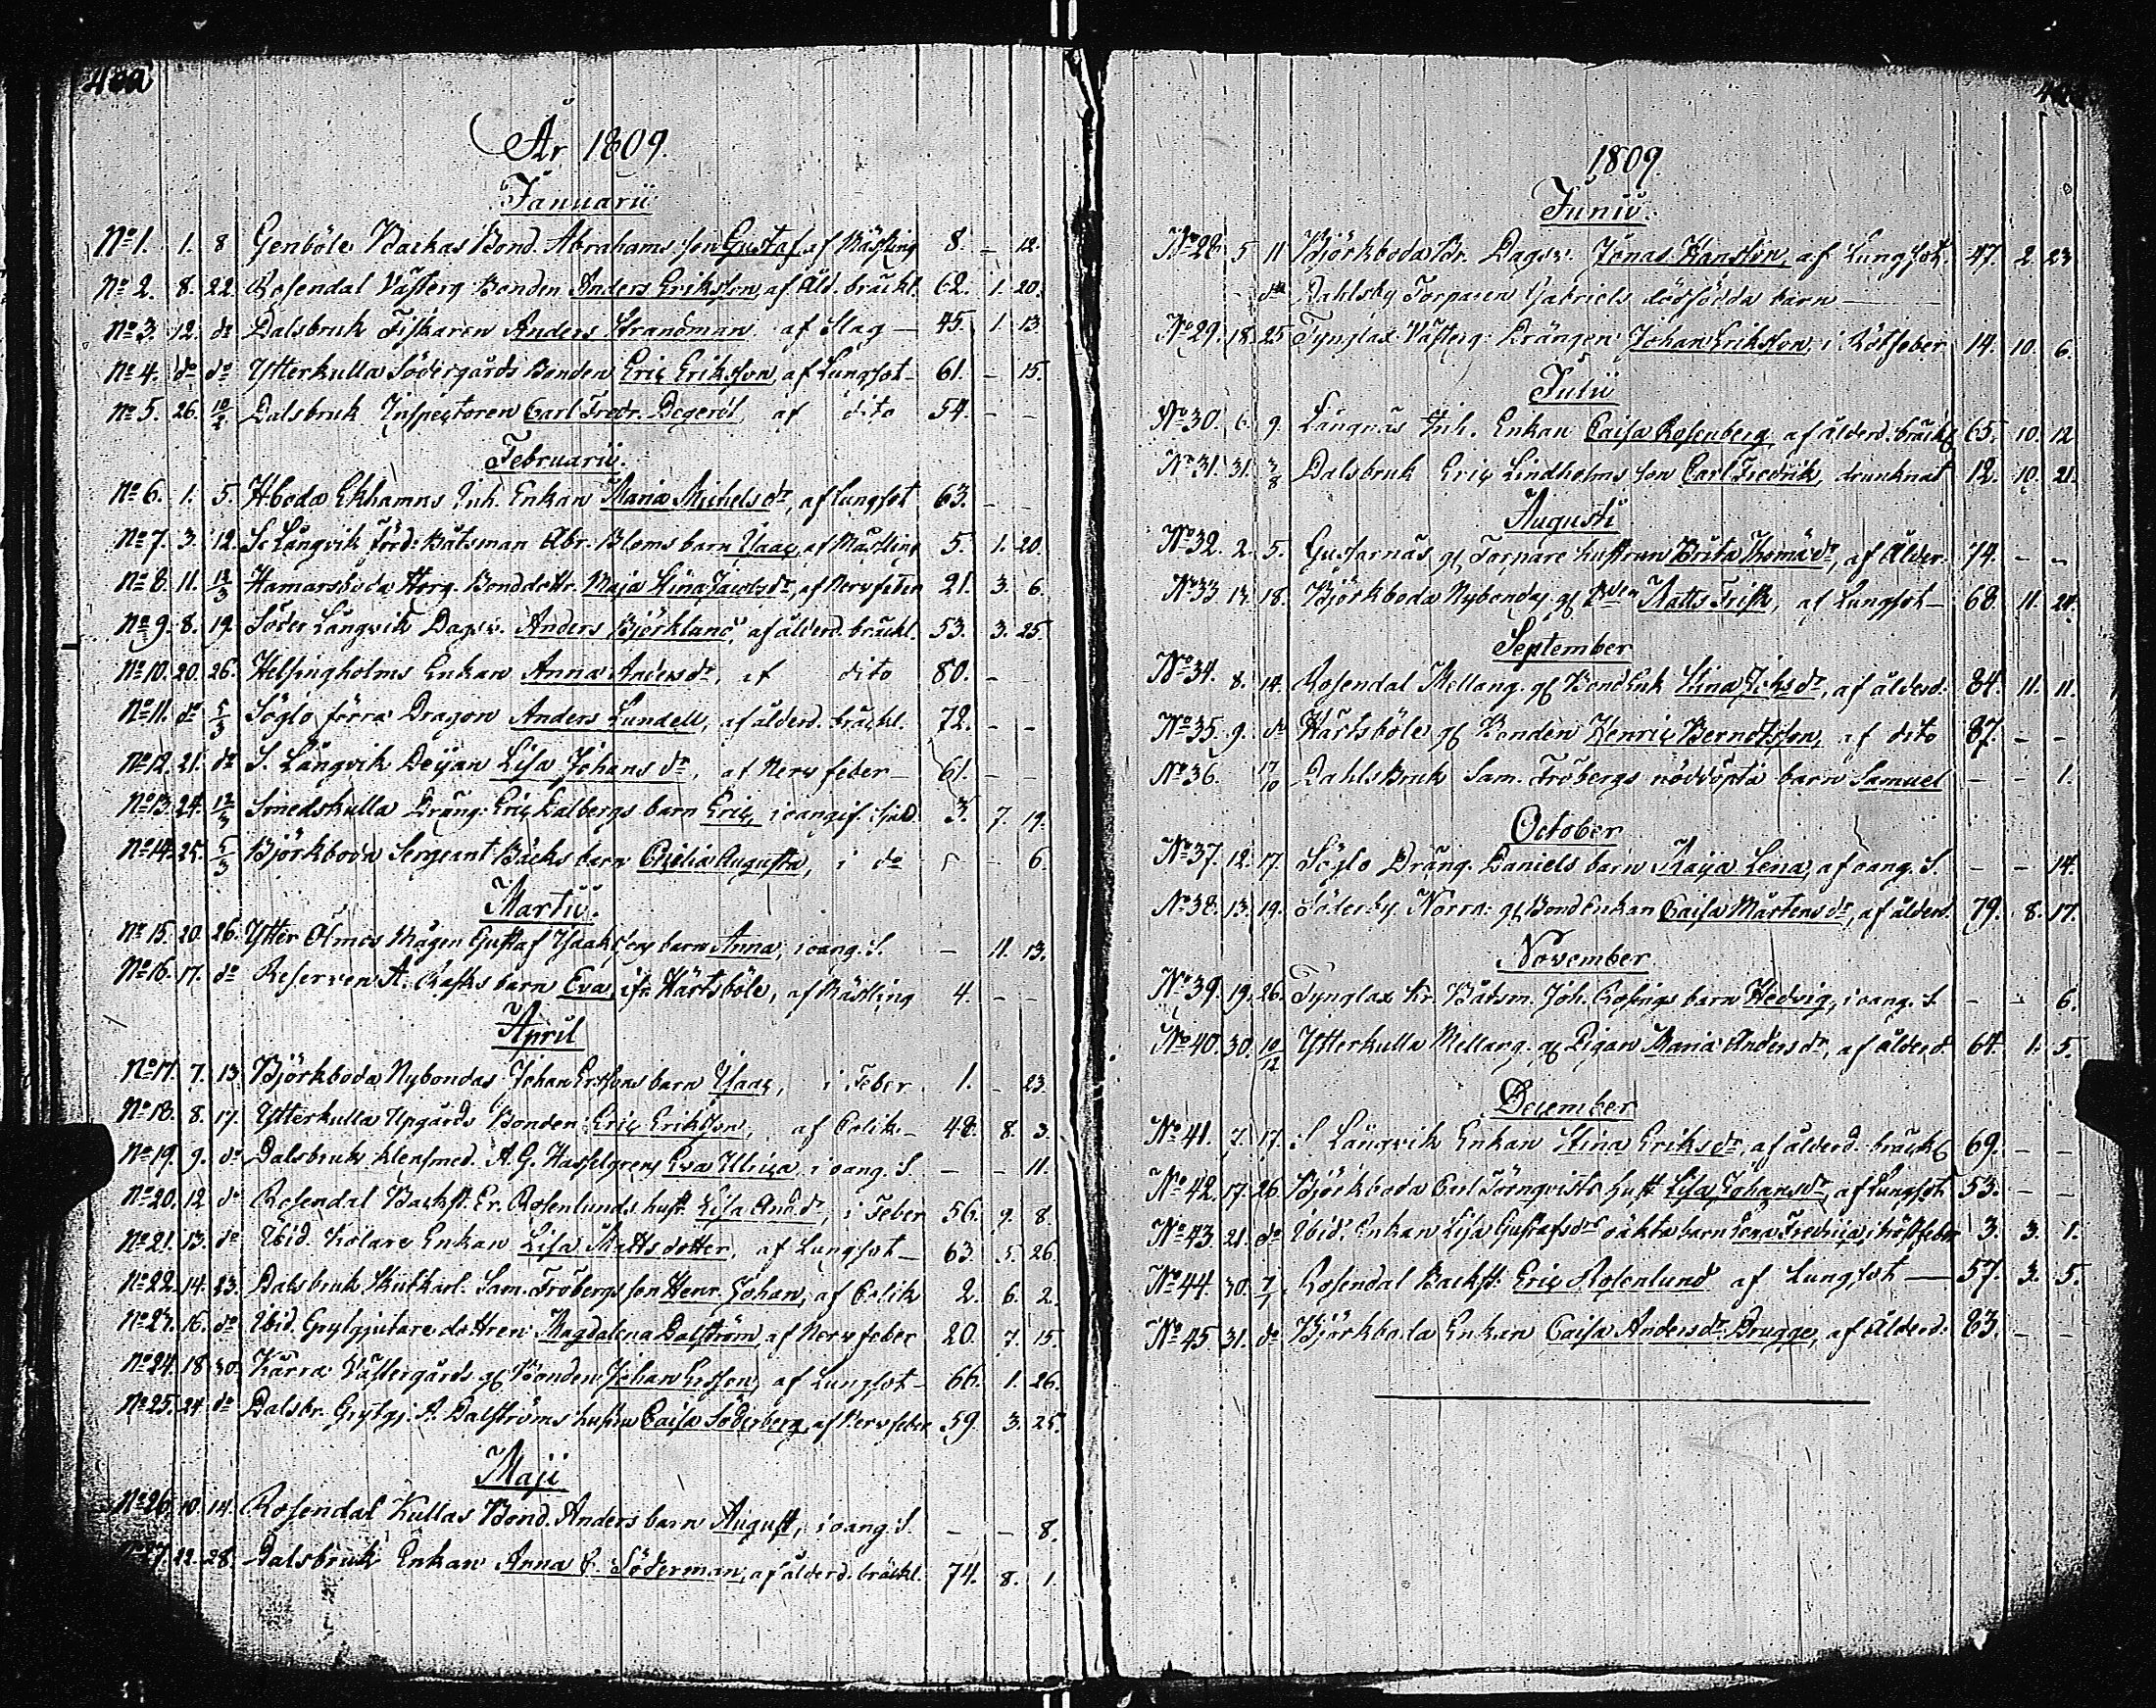 År 1809.
Januarii
No 1. 1. 8 Genböle Backas Bond. Abrahams son Gustaf af Mässling 8. – 12.
No 2. 8. 22. Rosendal Västerg. Bonden Anders Eriksson, af åld. bräckl. 62. 1. 20.
No 3. 12. do Dalsbruk Fiskaren Anders Strandman af slag – 45. 1. 13.
No 4. do do Ytterkulla Södergårds Bonden Eric Eriksson, af Lungsot – 61. – 15.
No 5. 26. 10/2. Dalsbruk Inspectoren Carl Fredr. Degeröl af dito 54. – –
Februarii.
No 6. 1. 5. Hboda Ekhamns Inh. Enkan Maria Michelsdr, af Lungsot 63. – –
No 7. 3. 12. Sr Långvik Förd: Båtsman Abr. Bloms barn Isaac, af Mässling 5. 1. 20.
No 8. 11. 12/3 Hamarsboda Bonddottr. Maja Stina Jacobsdr, af Nervfeber 21. 3. 6.
No 9. 8. 19. Söder Långvik Dagsv. Anders Björklund af ålderd. bräckl. 53. 3. 25.
No 10. 20. 26. Helsingholms Enkan Anna Andersdr, af dito 80. –
No 11. do 5/3 Söglo förra Dragon Anders Lundell, af ålderd. bräckl. 72. – –
No 12. 21. do S. Långvik Deijan Lisa Johansdr, af Nervfeber – 61. – –
No 13. 24. 12/3 Smedskulla Dräng: Eric Dalbergs barn Eric, i oangif. sjukd. 3. 7. 19.
No 14. 25. 5/3 Björkboda Sergeant Bäcks barn Cecilia Augusta, i do – 6.
Martii.
No 15. 20. 26. Ytter Ölmos Mågen Gustaf Isaakssons barn Anna, i oang. S. – 11. 13.
No 16. 17. do Reserven A. Rasks barn Eva, ifr. Härtsböle, af Mässling 4. – –
April
No 17. 7. 13 Björkboda Nybondas Johan Erssons barn Isaac, i Feber 1. – 23.
No 18. 8. 17. Ytterkulla Upgårds Bonden Eric Eriksson, af Colik – 48. 8. 3.
No 19. 9. do Dalsbruks klensmed. A. G. Hasselgrens Eva Ulrica i oang. S. – – 11.
No 20. 12 do Rosendal Backst. Er. Rosenlunds hust. Lisa Andrdr, i Feber 56. 9. 8.
No 21. 13. do Ibid. Kolare Enkan Lisa Mattsdotter, af Lungsot – 63 5. 26.
No 22. 14. 23. Dalsbruk Skutkarl. Sam. Frobergs son Henr. Johan, af Colik 2. 6. 2.
No 23. 16. do Ibid. Grytgjutare dottren Magdalena Dalström, af Nervfeber 20 7. 15.
No 24. 18. 30. Kärra Västergårds gl Bonden Johan Ersson, af Lungsot – 66. 1. 26.
No 25. 24. do Dalsbr. Grytgj. A. Dalströms hustru Caisa Söderberg, af Nervfeber 59 3. 25.
Maji
No 26. 10. 14. Rosendal Kullas Bond. Anders barn August, i oang. S. – – 8.
22. 28. Dalsbruk Enkan Anna Söderman, af ålderd. bräckl. 74. 8. 1.
1809.
Junii.
No 28 5 11 Björkboda Br. Dagsv. Jonas Hansson, af Lungsot. 47. 2. 23
– do Dahlsby Torparen Gabriels dödfödda barn –
No 29. 18. 25. Tynglax Västerg: Drängen Johan Eriksson, i Rötfeber 14. 10. 6.
Julii
No 30. 6. 9. Långnäs Inh. Enkan Caisa Rosenberg af ålderd. bräckl 65. 10. 12
No 31. 31. 3/8 Dalsbruk Eric Lindholms son Carl Fredrik, drunknat 12. 10. 21.
Augusti
No 32. 2. 5. gl. Torpare hustrun Brita Thomädr, af Ålder. 74. – –
No 33 13. 18. Björkboda Nybondas gl Matts Frisk, af Lungsot – 68. 11. 24.
September
No 34. 8. 14. Rosendal Mellang. gl BondEnk. Stina Ericsdr, af ålderd. 84. 11. 11.
No 35. 9. do Härtsböle gl Bonden Henric Berndtsson, af dito 87. – –
No 36. 17/10 Dahlsbruk Sam. Frobergs nöddöpta barn Samuel – – 1.
October
No 37. 12. 17. Söglo Dräng. Daniels barn Maja Lena, af oang. S. – – 14.
No 38. 13. 19. Söderby Norra: gl BondEnkan Caisa Mårtensdr, af ålderd. 79. 8. 17.
November
No 39. 19. 26. Tynglax Kr. Båtsm. Joh. Rosings barn Hedvig, i oang. S. – – 6.
No 40. 30. 10/12 Ytterkulla Mellang. gl Pigan Maria Andersdr, af ålderd. 64. 1. 5.
December
No 41. 7. 17. S Långvik Enkan Stina Eriksdr, af ålderd. bräckl 69. – –
No 42. 17. 26. Björkboda Carl Törnqvists hust Lisa Johansdr, af Lungsot 53. – –
No 43. 21. do Ibid. Enkan Lisa Gustafsdrs oäkta barn Lena Fredrica, i rötfeber 3. 3. 1.
No 44. 30. 7/1. Rosendal Backst: Eric Rosenlund af Lungsot – 57. 3. 5.
No 45. 31. do Björkboda Enkan Caisa Andersdr Brugge, af Ålderd: 83. – –